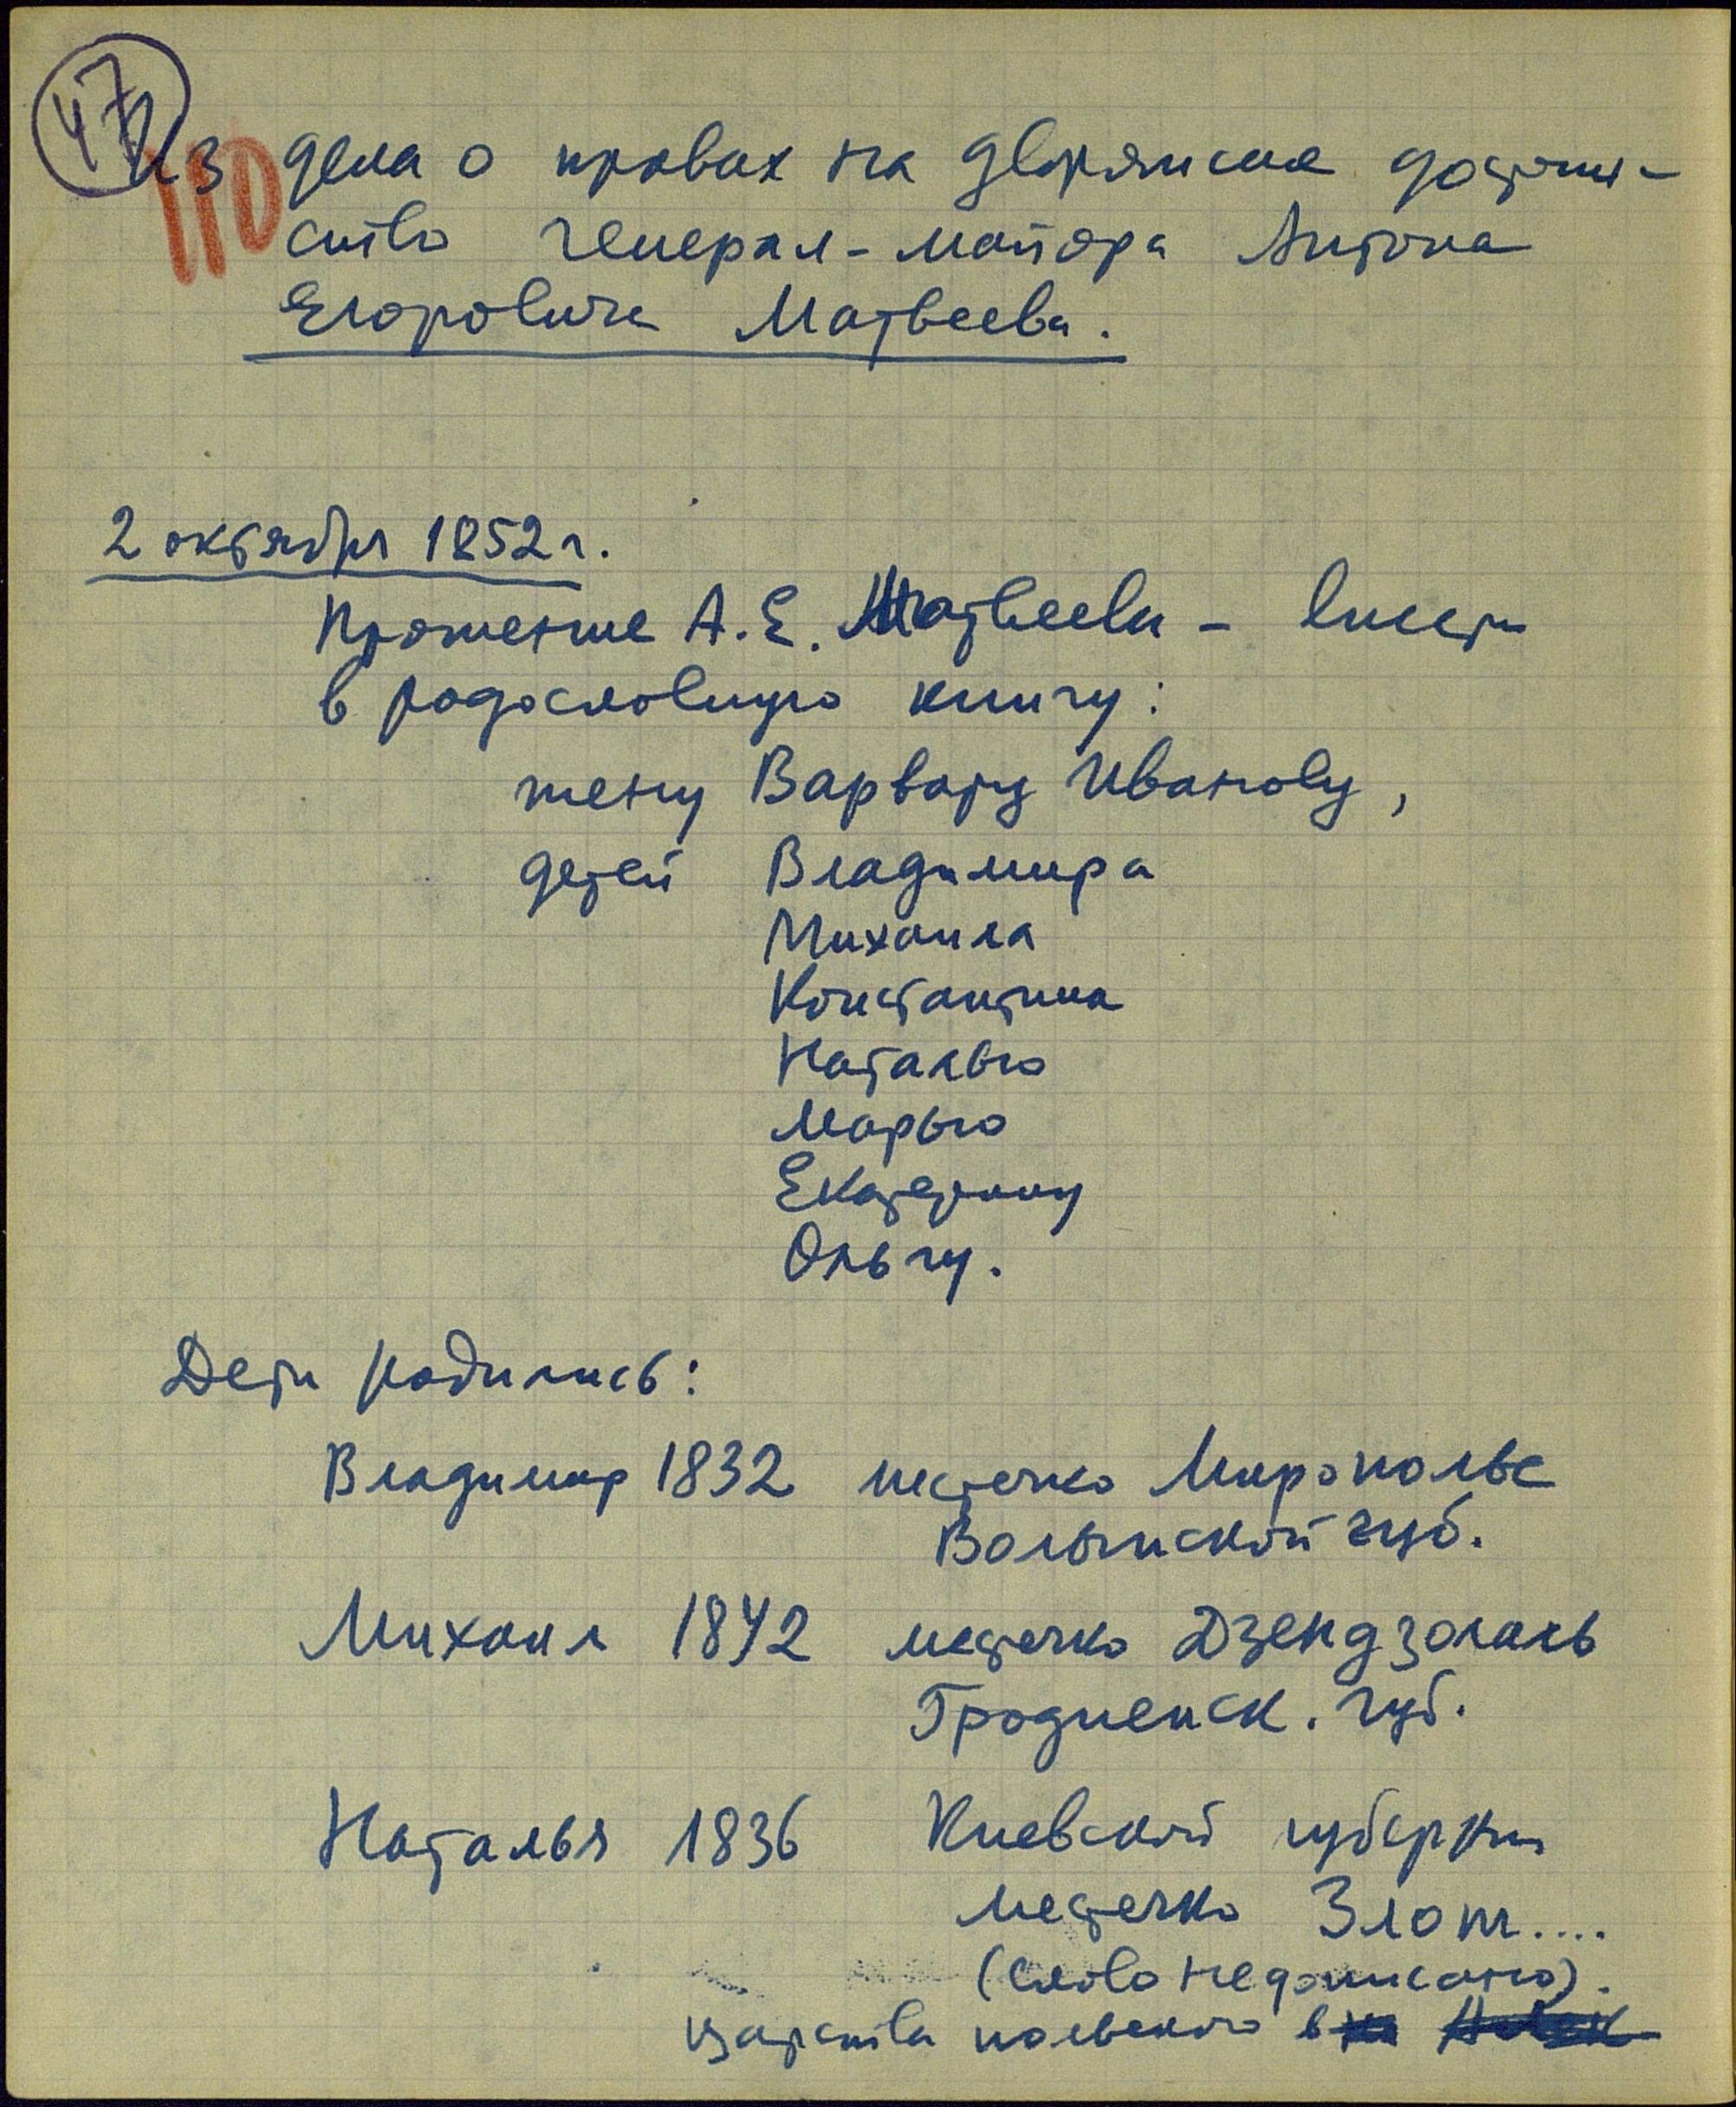 47
110
Из дела о правах на дворянское достоин-
ство генерал-майора Антона
Егоровича Матвеева.
2 октября 1852 г.
Прошение А.Е. Матвеева - внести
в родословную книгу:
жену Варвару Иванову,
детей Владимира
Михаила
Константина
Наталью
Марью
Екатерину
Ольгу.
Дети родились:
Владимир 1832 местечко Мирополье
Волынской губ.
Михаил 1842 местечко Дзендзолаль
Гродненск. губ.
Наталья 1836 Киевской губернии
местечко Злот....
(слово недописано).
царства польского в